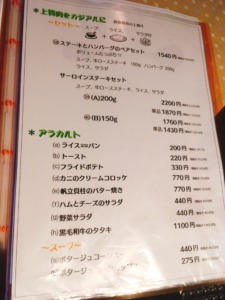 *上質肉をカジアルに
~セット~
スープ、ライス、サラダ付
⑱ステーキとハンバーグのペアセット
ボリュームたっぷり!!
1540円
スープ、牛ロースステーキ 100g ハンバーグ 200g
ライス、サラダ
サーロインステーキセット
⑲(A)200g
2200円
単品 1870円
⑳(B)150g
1760円
単品 1430円
*アラカルト
(a)ライスorパン 200円
(b)トースト 220円
(c)フライドポテト 330円
(d)カニのクリームコロッケ 770円
(e)帆立貝柱のバター焼き 770円
(f)ハムとチーズのサラダ 440円
(g)野菜サラダ 440円
(h)黒毛和牛のタタキ 1100円
~スープ~
ポタージュ 440円
ポタージ 275円